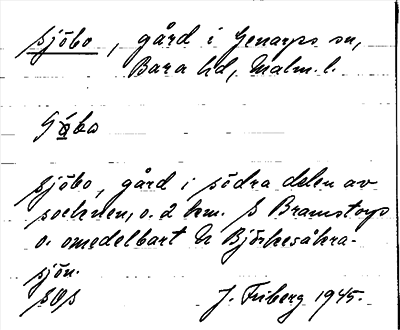 Sjöbo, gård i Genarps sn,
Bara hd, Malm. l.
Sjöbo, gård i södra delen av
socknen, o. 2 km. S Bramstorp
o. omedelbart N Björkesåkra-
sjön.
J. Friberg 1945.